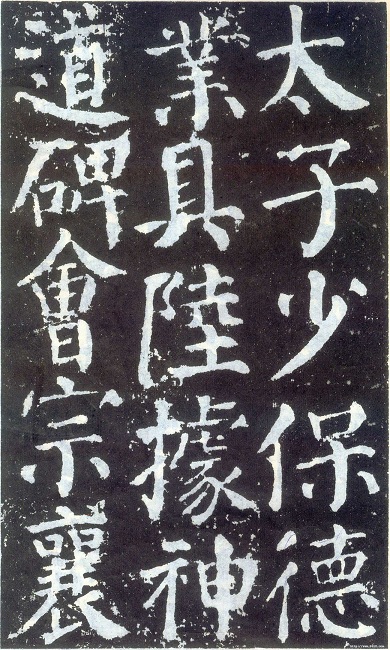 太子少保德
業具陸據神
道碑會宗襄